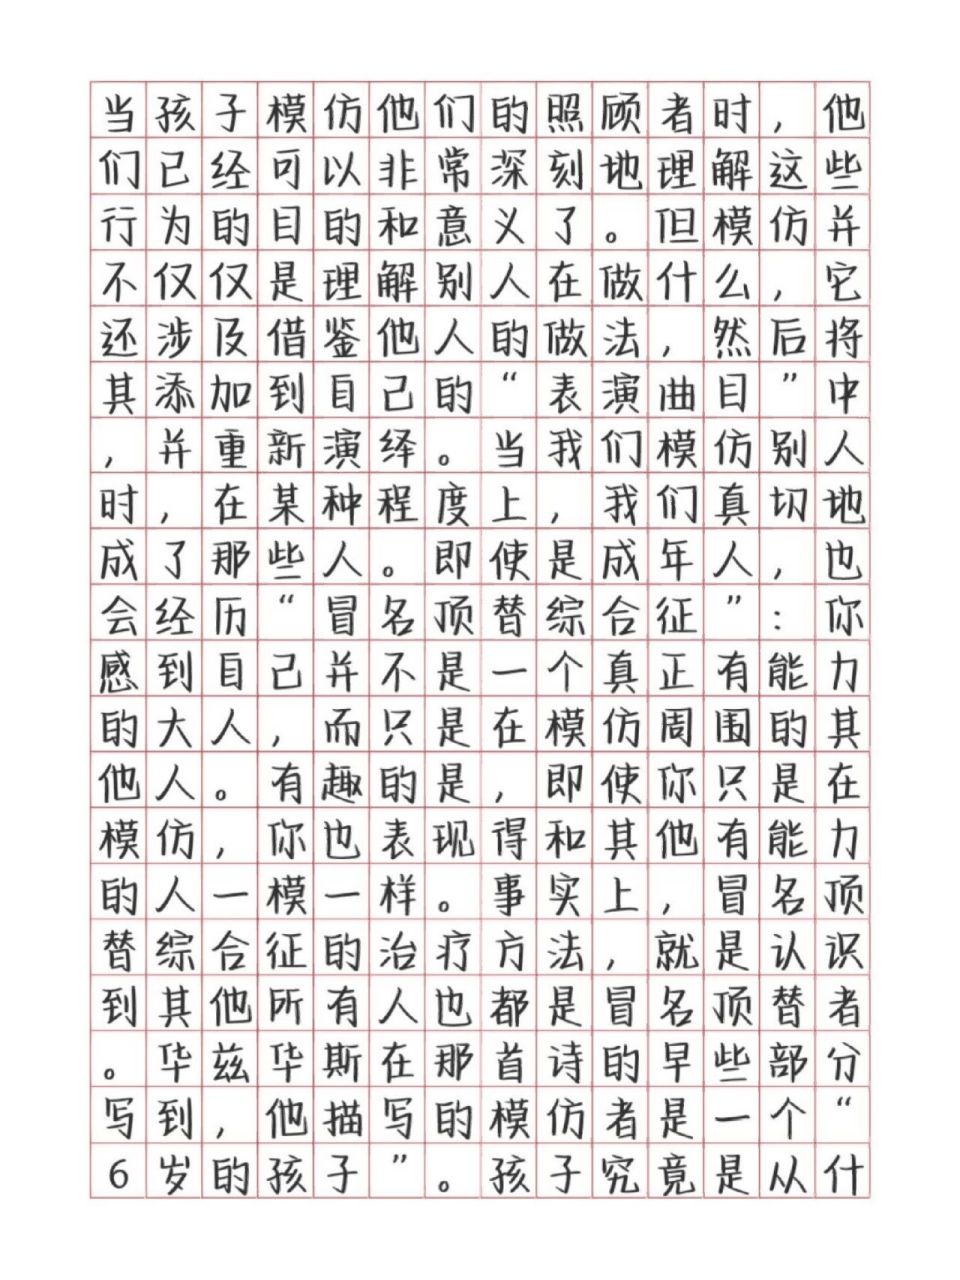 当孩子模仿他们的照顾者时，他
们已经可以非常深刻地理解这些
行为的目的和意义了。但模仿并
不仅仅是理解别人在做什么，它
还涉及借鉴他人的做法，然后将
其添加到自己的“表演曲目”中
，并重新演绎。当我们模仿别人
时，在某种程度上，我们真切地
成了那些人。即使是成年人，也
会经历“冒名顶替综合征”：你
感到自己并不是一个真正有能力
的大人，而只是在模仿周围的其
他人。有趣的是，即使你只是在
模仿，你也表现得和其他有能力
的人一模一样。事实上，冒名顶
替综合征的治疗方法，就是认识
到其他所有人也都是冒名顶替者
。华兹华斯在那首诗的早些部分
写到，他描写的模仿者是一个“
6岁的孩子”。孩子究竟是从什